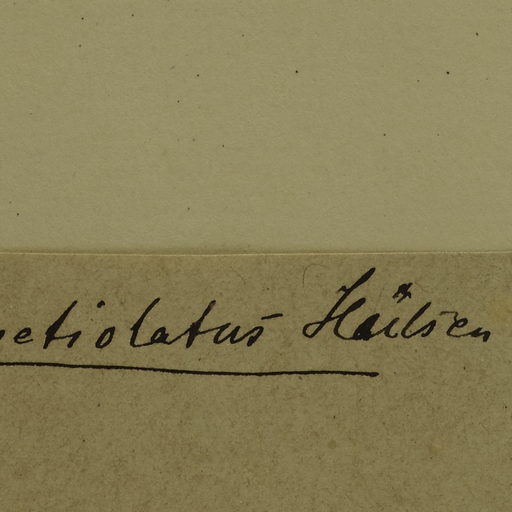 petiolatus Hülsen